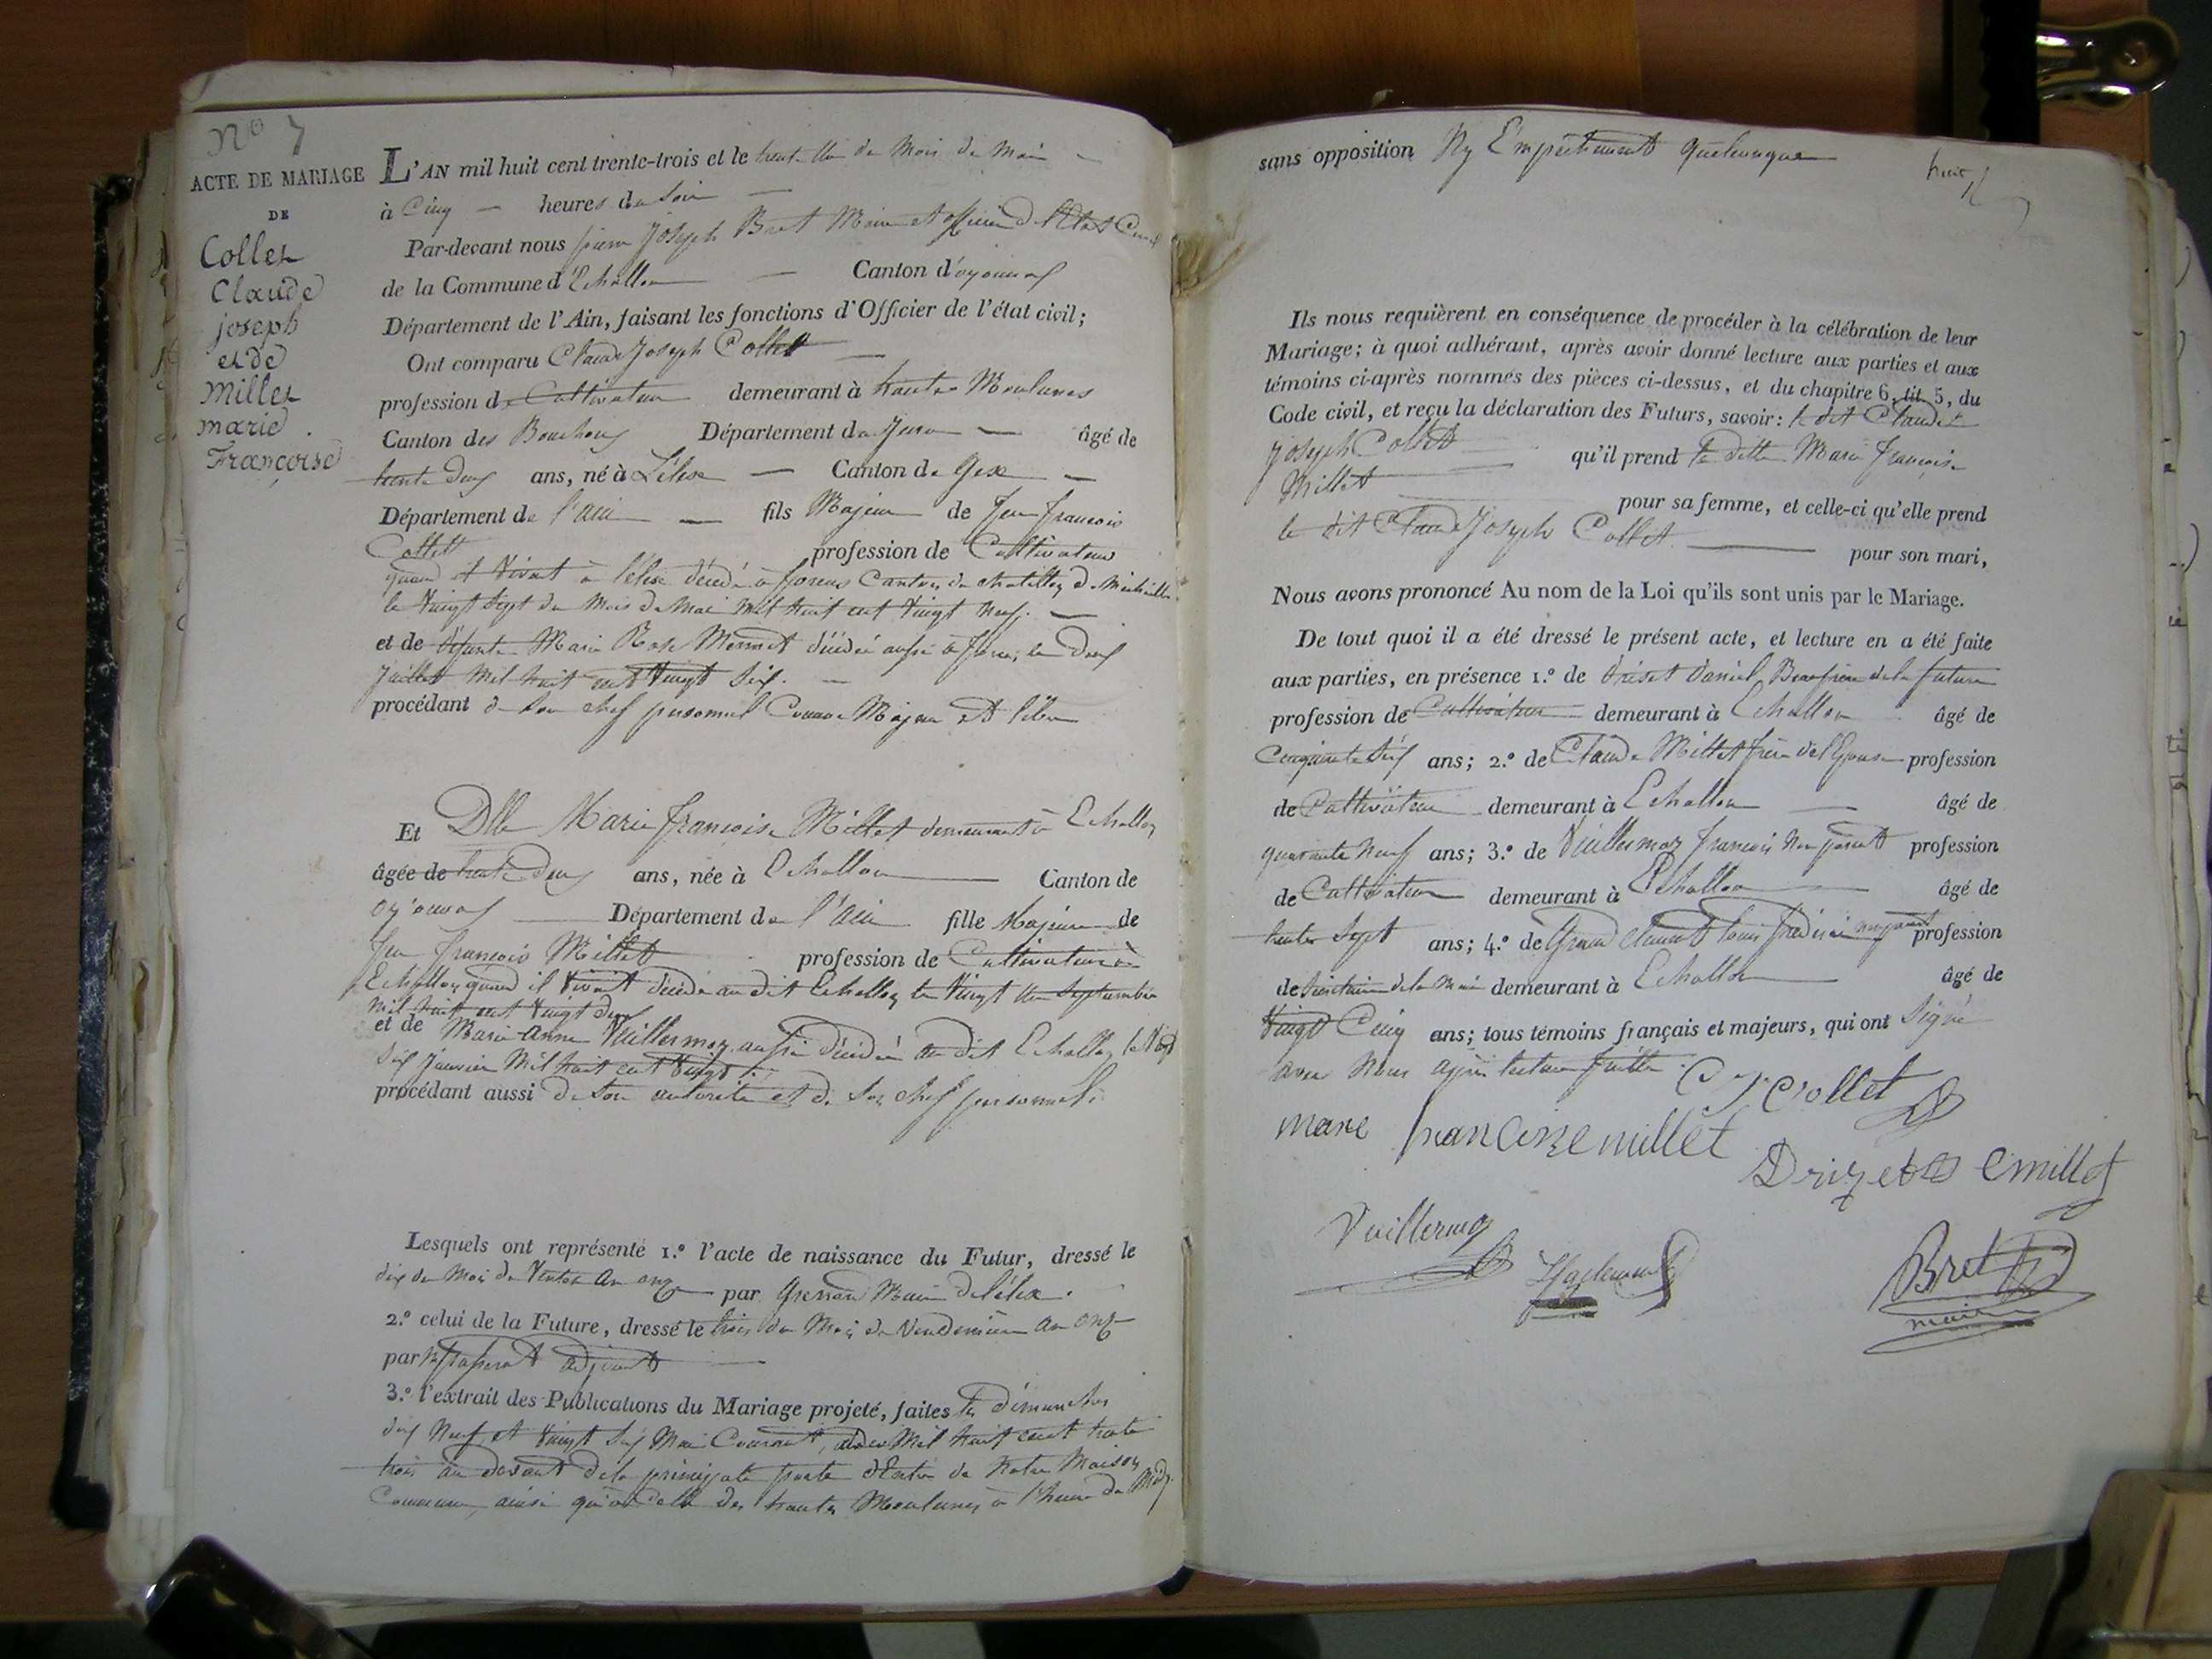 No 7
ACTE DE MARIAGE
DE
Collet
Claude
joseph
et de
Millet
marie
Françoise
L'AN mil huit cent trente-trois et le trente un du Mois de Mai
à Cinq heures du Soir
Par-devant nous pierre Joseph Bret Maire et officier de l'Etat Civil
de la Commune d'Echallon Canton d'oyonnax
Département de l'Ain, faisant les fonctions d'Officier de l'état civil;
Ont comparu Claude Joseph Collet
profession de Cultivateur demeurant à hautes Moulunes
Canton des Bouchoux Département du Jura âgé de
trente deux ans, né à Lélex Canton de Gex
Département de l'ain fils Majeur de feu francois
Collet profession de Cultivateur
quand il Vivait à lélex décédé à forens Canton de chatillon de Michaille
le Vingt Sept du Mois de Mai Mil huit cent Vingt Neuf.
et de défunte Marie Rose Mermet décédée aussi à forens le deux
juillet Mil huit cent Vingt Six.
procédant de Son chef personnel Comme Majeur et libre
Et Dlle Marie françoise Millet demeurant à Echallon
âgée de trente deux ans, née à Echallon Canton de
oyonnax Département de l'ain fille Majeure de
feu francois Millet profession de Cultivateur à
Echallon quand il Vivait décédé au dit Echallon le Vingt un Septembre
mil huit cent Vingt deux
et de Marie Anne Vuillermoz aussi décédée au dit Echallon le Vingt
Six janvier Mil huit cent Vingt
procédant aussi de Son autorité et de Son chef personnel.
Lesquels ont représenté 1.º l'acte de naissance du Futur, dressé le
dix du Mois de Ventôse an onze par Grosrand Maire de lélex.
2.º celui de la Future, dressé le trois du Mois de Vendémiaire an onze
par adjoint
3.º l'extrait des Publications du Mariage projeté, faites les dimanches
dix Neuf et Vingt Six Mai Courant, Mil huit cent trente
trois au devant de la principale porte d'Entrée de Notre Maison
Commune, ainsi qu'à celle des hautes Moulunes à l'heure de Midy
sans opposition Ny Empêchement quelconque
huit
Ils nous requièrent en conséquence de procéder à la célébration de leur
Mariage; à quoi adhérant, après avoir donné lecture aux parties et aux
témoins ci-après nommés des pièces ci-dessus, et du chapitre 6, tit. 5, du
Code civil, et reçu la déclaration des Futurs, savoir: le dit Claude
Joseph Collet qu'il prend la ditte Marie françoise
Millet pour sa femme, et celle-ci qu'elle prend
le dit Claude Joseph Collet pour son mari,
Nous avons prononcé Au nom de la Loi qu'ils sont unis par le Mariage.
De tout quoi il a été dressé le présent acte, et lecture en a été faite
aux parties, en présence 1.º de Driset Daniel, Beaufrère de la future
profession de Cultivateur demeurant à Echallon âgé de
Cinquante Six ans; 2.º de Claude Millet frère de l'Epouse profession
de Cultivateur demeurant à Echallon âgé de
quarante Neuf ans; 3.º de Vuillermoz francois Non parent profession
de Cultivateur demeurant à Echallon âgé de
trente Sept ans; 4.º de Grand clement louis frédéric non parent profession
de Secrétaire de la Mairie demeurant à Echallon âgé de
Vingt Cinq ans; tous témoins français et majeurs, qui ont Signé
avec Nous après lecture faitte. C J Collet
marie francoise millet
Drizet D C millet
Vuillermoz
Bret
maire